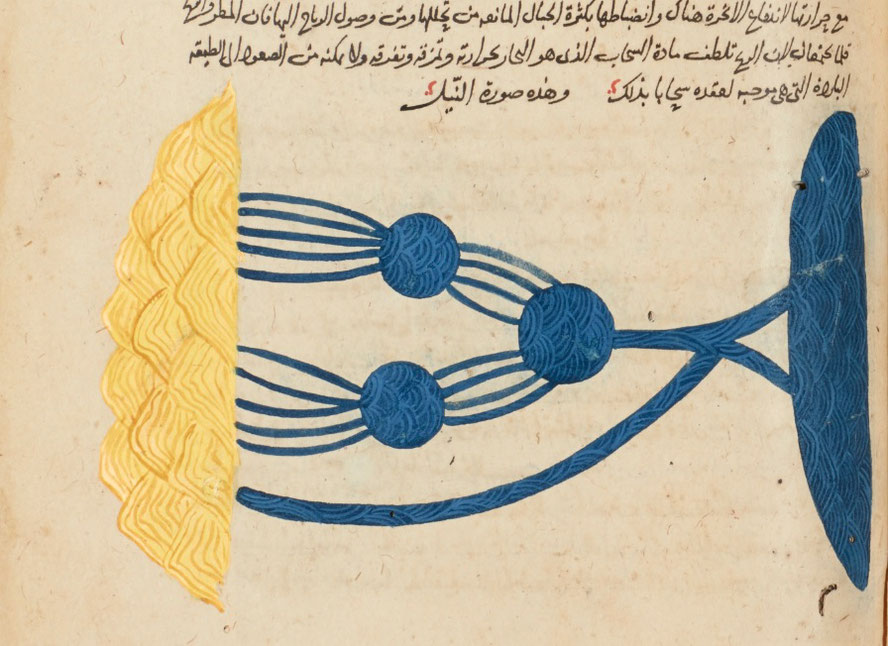 مع حرارتها لارتفاع الابخرة هناك وانضباطها بكثرة الجبال المانعه من تحللها ومن وصول الرياح اليها فان
فلما يلطف مادة السحاب الذى هو البخار بحرارته وتمزقه وتفرقه ولا يمكنه من الصعود الى الطبقه
الباردة التى هى موجبه لعقده سحابا بذلك وهذه صورة النّيل